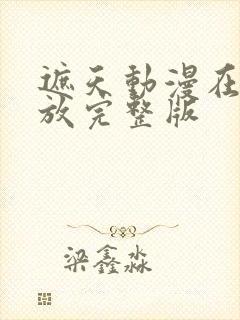 遮天動漫在
放完整版
梁鑫淼